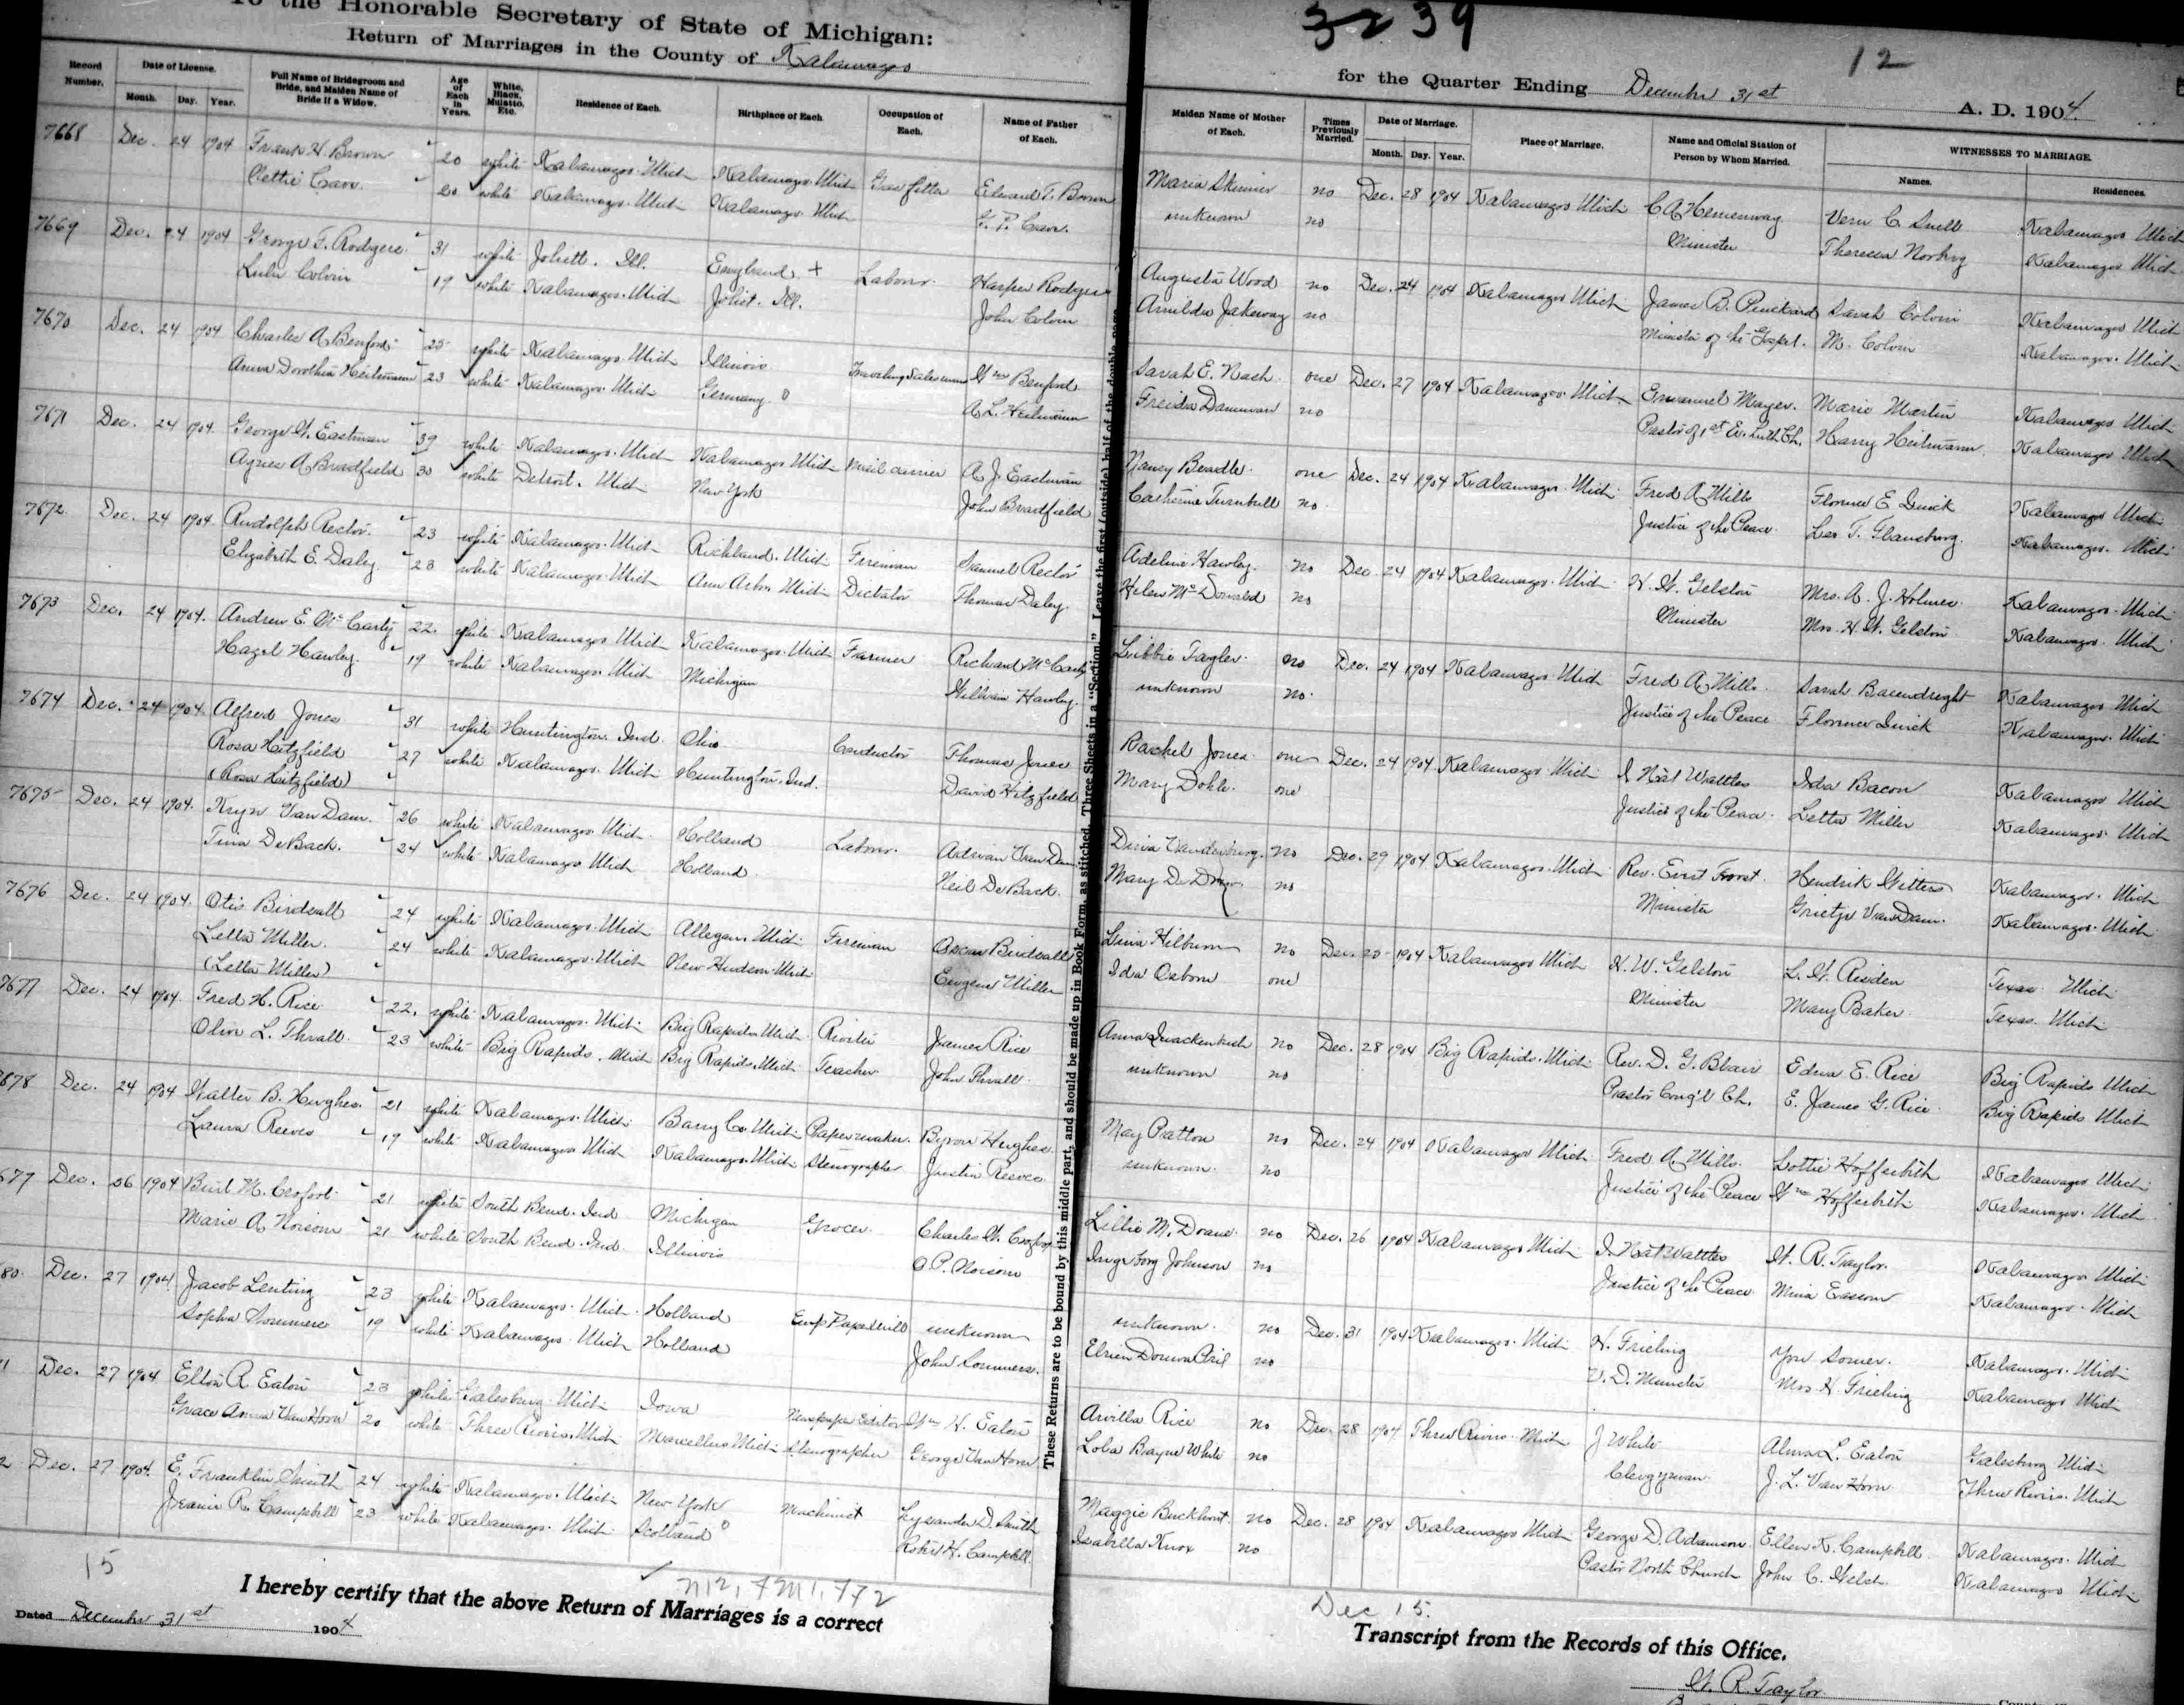 To the Honorable Secretary of State of Michigan:
Return of Marriages in the County of Kalamazoo
Record Number.
Date of License.
Month. Day. Year.
Full Name of Bridegroom and Bride, and Maiden Name of Bride if a Widow.
Age of Each in Years.
White, Black, Mulatto, Etc.
Residence of Each.
Birthplace of Each
Occupation of Each.
Name of Father of Each.
7668 Dec. 24 1904 Frank H. Brown 20 white Kalamazoo Mich Kalamazoo Mich Edward T. Brown
20 white Kalamazoo Mich Kalamazoo Mich
7669 Dec. 24 1904 George F. Rodgers 31 white Joliett. Ill. England + Labour. Harper Rodgers
Lulu Colvin 19 white Kalamazoo Mich Joliet. Ill. John Colvin
7670 Dec. 24 1904 Charles A Benford 25 white Kalamazoo Mich Illinois Traveling Salesman Wm Benford
Anna Dorothea Heilmann 23 white Kalamazoo Mich Germany A. L. Heilmann
7671 Dec. 24 1904. George W. Eastman 39 white Kalamazoo Mich Kalamazoo Mich Mail carrier A. J. Eastman
Agnes A Bradfield 30 white Detroit. Mich New York John Bradfield
7672. Dec. 24 1904. Rudolph Rector. 23 white Kalamazoo Mich Richland. Mich Fireman Samuel Rector
Elizabeth E. Daley. 23 white Kalamazoo Mich Ann Arbor Mich Dictator Thomas Daley.
7673 Dec. 24 1904. Andrew E. McCarty 22. white Kalamazoo Mich Kalamazoo Mich Farmer Richard McCarty
Hazel Hawley. 19 white Kalamazoo Mich Michigan William Hawley.
7674 Dec. 24 1904. Alfred Jones 31 white Huntington. Ind Ohio Conductor Thomas Jones
Rosa Hitzfield 27 white Kalamazoo. Mich Huntington. Ind. David Hitzfield
(Rosa Hitzfield)
7675 Dec. 24 1904. Kryn Van Dam. 26 white Kalamazoo Mich Holland Labour. Adrian Van Dam
Tina DeBack. 24 white Kalamazoo Mich Holland Neil De Back.
7676 Dec. 24 1904. Otis Birdsall 24 white Kalamazoo Mich Allegan Mich Fireman Birdsall
Letta Miller. 24 white Kalamazoo Mich New Hudson Mich Eugene Miller
(Letta Miller)
7677 Dec. 24 1904. Fred H. Rice 22. white Kalamazoo Mich Big Rapids Mich James Rice
Olive L. Thrall. 23 white Big Rapids. Mich Big Rapids Mich Teacher John Thrall.
7678 Dec. 24 1904 Walter B. Hughes. 21 white Kalamazoo Mich Barry Co. Mich Papermaker. Byron Hughes
Laura Reeves 19 white Kalamazoo Mich Kalamazoo Mich Stenographer Justin Reeves
Dec. 26 1904 Burt M. Crofoot 21 white South Bend. Ind Michigan Grocer. Charles W. Crofoot
Marie A 21 white South Bend. Ind. Illinois
80. Dec. 27 1904. Jacob Lenting 23 white Kalamazoo Mich Holland Emp. Papermill unknown
Sopha Sommers 19 white Kalamazoo Mich Holland John Sommers.
Dec. 27 1904 Elton R Eaton 23 white Galesburg. Mich Iowa Newspaper Editor Wm H. Eaton
Grace Anna Van Horn 20 white Three Rivers. Mich Marcellus Mich Stenographer George Van Horn
2 Dec. 27 1904. E. Franklin Smith 24 white Kalamazoo. Mich New York Machinist Lysander D. Smith
Jeanie R. Campbell 23 white Kalamazoo Mich Scotland Robert H. Campbell.
15
I hereby certify that the above Return of Marriages is a correct
Dated December 31st 1904
These Returns are to be bound by this middle part, and should be made up in Book Form, as stitched. Three Sheets in a "Section". Leave the first (outside) half of the double page
3239
12
for the Quarter Ending December 31st A. D. 1904.
Maiden Name of Mother of Each.
Times Previously Married.
Date of Marriage.
Month. Day. Year.
Place of Marriage.
Name and Official Station of Person by Whom Married.
WITNESSES TO MARRIAGE.
Names.
Residences.
Maria Skinner no Dec. 28 1904 Kalamazoo Mich C A Hemenway Vern C. Snell Kalamazoo Mich
unknown no Minister Theressa Norberg Kalamazoo Mich
Augusta Wood no Dec. 24 1904 Kalamazoo Mich James B. Sarah Colvin Kalamazoo Mich
Jakeway no Minister of the Gospel. M. Colvin Kalamazoo. Mich
Sarah E. Nash. one Dec. 27 1904 Kalamazoo. Mich Emanuel Mayer. Marie Martin Kalamazoo Mich
Freida Dammann no Pastor of 1st Ev. Luth Ch. Harry Heilmann. Kalamazoo Mich
Nancy Beadle. one Dec. 24 1904 Kalamazoo. Mich Fred A Mills Florence E. Quick Kalamazoo Mich
Catherine Turnbull no. Justice of the Peace. Leo T. Kalamazoo. Mich
Adeline Hawley. no Dec. 24 1904 Kalamazoo. Mich H. W. Gelston Mrs. A. J. Holmes. Kalamazoo. Mich
Helen McDonald no Minister Mrs. H. W. Gelston Kalamazoo. Mich
Libbie no Dec. 24 1904 Kalamazoo. Mich Fred A Mills. Sarah Kalamazoo Mich
unknown no. Justice of the Peace Florence Quick Kalamazoo. Mich
Rachel Jones one Dec. 24 1904 Kalamazoo Mich J Nat Wattles Ida Bacon Kalamazoo Mich
Mary Dohle. one Justice of the Peace. Letta Miller Kalamazoo. Mich
Dina Vandenburg. no Dec. 29 1904 Kalamazoo. Mich Rev. Evert Hendrik Kalamazoo. Mich
Mary no Minister Grietje Van Dam. Kalamazoo. Mich
no Dec. 25 1904 Kalamazoo Mich H. W. Gelston L. W. Texas Mich
Ida Osborn one Minister Mary Baker. Texas. Mich
Anna Quackenbush no Dec. 28 1904 Big Rapids. Mich Rev. D. G. Blair Edna E. Rice Big Rapids Mich
unknown no Pastor Cong'l Ch. E. James G. Rice. Big Rapids Mich
May Patton no Dec. 24 1904 Kalamazoo Mich Fred A. Mills. Lottie Hofferbeth Kalamazoo Mich
unknown. no Justice of the Peace Wm Hofferbeth Kalamazoo. Mich
Lillie M. Doane. no Dec. 26 1904 Kalamazoo Mich J. Nat Wattles W. R. Taylor. Kalamazoo Mich
Johnson no Justice of the Peace Mina Kalamazoo. Mich
unknown. no Dec. 31 1904 Kalamazoo. Mich H. Frieling Kalamazoo. Mich
no V. D. Minister Mrs. H. Frieling Kalamazoo Mich
Arvilla Rice no Dec. 28 1904 Three Rivers. Mich J White Alma L. Eaton Galesburg Mich
Lola Bayne White no Clergyman J. L. Van Horn Three Rivers. Mich
Maggie Buckhout. no Dec. 28 1904 Kalamazoo Mich George D. Adamson Ellen K. Campbell. Kalamazoo. Mich
Isabella Knox no Pastor North Church John C. Welch. Kalamazoo Mich
Dec 15.
Transcript from the Records of this Office.
W. R. Taylor